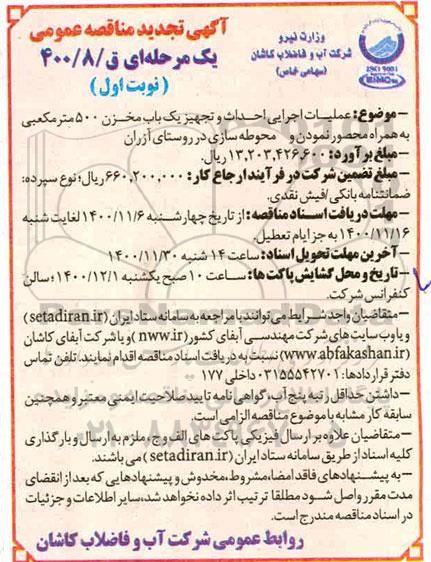 وزارت نیرو
شرکت آب و فاضلاب کاشان
(سهامی خاص)
آگهی تجدید مناقصه عمومی
یک مرحله‌ای ق/۴۰۰/۸
(نوبت اول)
ISO 9001
–موضوع: عملیات اجرایی احداث و تجهیز یک باب مخزن ۵۰۰ مترمکعبی
به همراه محصور نمودن و محوطه سازی در روستای آزران
–مبلغ برآورد: ۱۳,۲۰۳,۴۲۶,۶۰۰ ریال.
–مبلغ تضمین شرکت در فرآیند ارجاع کار: ۶۶۰,۲۰۰,۰۰۰ ریال؛ نوع سپرده:
ضمانتنامه بانکی/فیش نقدی.
–مهلت دریافت اسناد مناقصه: از تاریخ چهارشنبه ۱۴۰۰/۱۱/۶ لغایت شنبه
۱۴۰۰/۱۱/۱۶ به جز ایام تعطیل.
–آخرین مهلت تحویل اسناد: ساعت ۱۴ شنبه ۱۴۰۰/۱۱/۳۰
–تاریخ و محل گشایش پاکت‌ها: ساعت ۱۰ صبح یکشنبه ۱۴۰۰/۱۲/۱؛ سالن
کنفرانس شرکت.
–متقاضیان واجد شرایط می‌توانند با مراجعه به سامانه ستاد ایران (setadiran.ir)
و یا وب سایت‌های شرکت مهندسی آبفای کشور (nww.ir) و یا شرکت آبفای کاشان
(www.abfakashan.ir) نسبت به دریافت اسناد مناقصه اقدام نمایند. تلفن تماس
دفتر قراردادها: ۰۳۱۵۵۵۴۲۷۰۱ داخلی ۱۷۷
–داشتن حداقل رتبه پنج آب، گواهی نامه تایید صلاحیت ایمنی معتبر و همچنین
سابقه کار مشابه با موضوع مناقصه الزامی است.
–متقاضیان علاوه بر ارسال فیزیکی پاکت های الف و ج، ملزم به ارسال و بارگذاری
کلیه اسناد از طریق سامانه ستاد ایران (setadiran.ir) می باشند.
–به پیشنهادهای فاقد امضا، مشروط، مخدوش و پیشنهادهایی که بعد از انقضای
مدت مقرر واصل شود مطلقا ترتیب اثر داده نخواهد شد، سایر اطلاعات و جزئیات
در اسناد مناقصه مندرج است.
روابط عمومی شرکت آب و فاضلاب کاشان